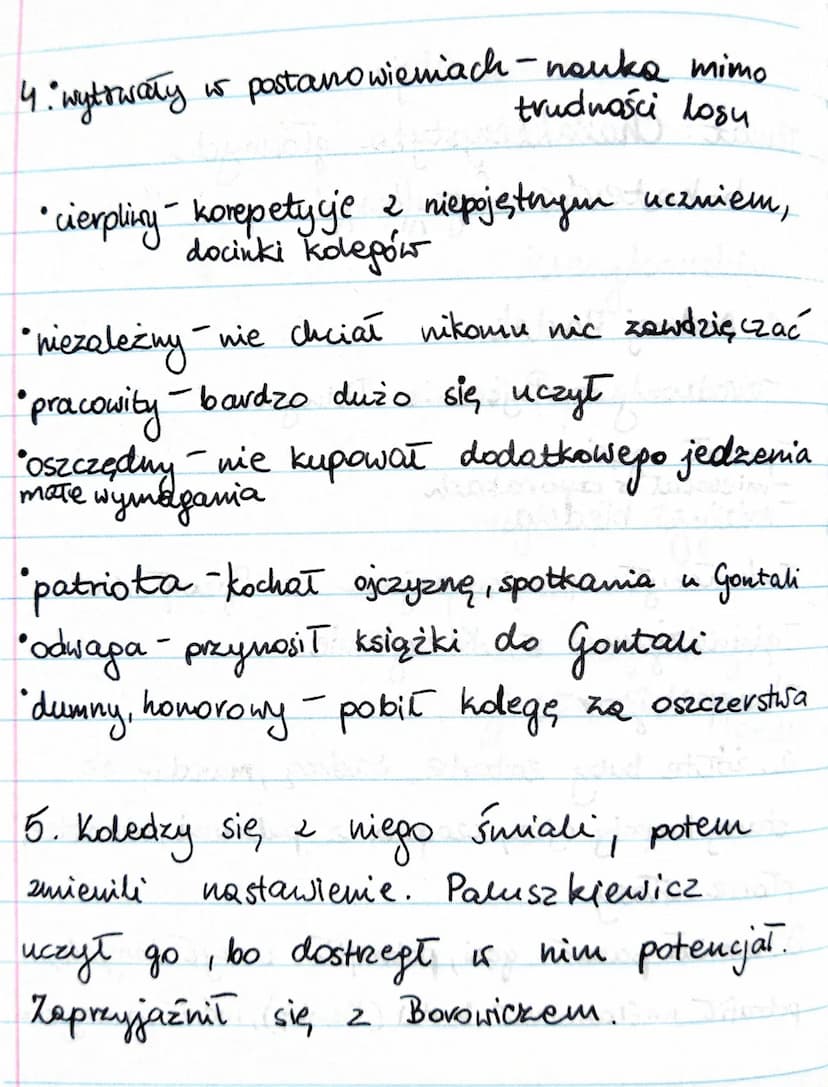 4. • wytrwały w postanowieniach - nauka mimo
trudności losu
• cierpliwy - korepetycje z niepojętnym uczniem,
docinki kolegów
• niezależny - nie chciał nikomu nic zawdzięczać
• pracowity - bardzo dużo się uczył
• oszczędny - nie kupował dodatkowego jedzenia
małe wymagania
• patriota - kochał ojczyznę, spotkania u Gontali
• odwaga - przynosił książki do Gontali
• dumny, honorowy - pobił kolegę za oszczerstwa
5. Koledzy się z niego śmiali, potem
zmienili nastawienie. Paluszkiewicz
uczył go, bo dostrzegł w nim potencjał.
Zaprzyjaźnił się z Borowiczem.